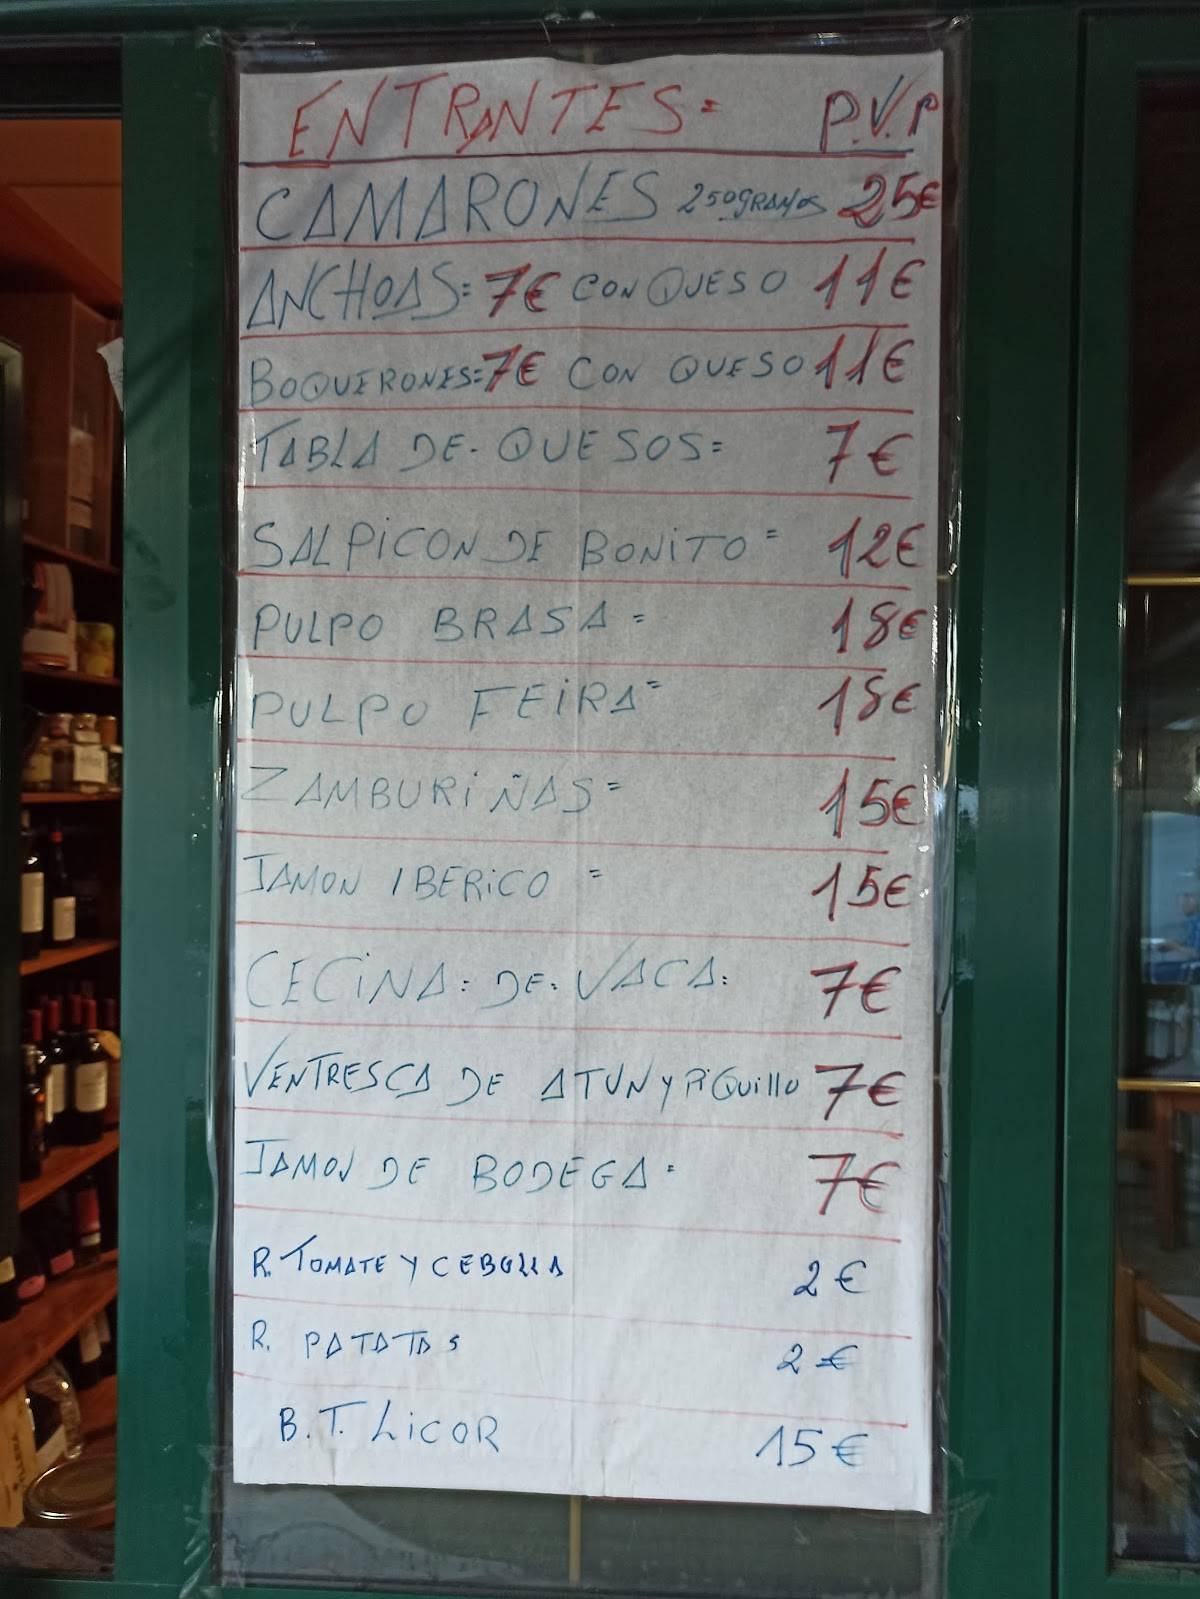 ENTRANTES= P.V.P
CAMARONES 250GRAMOS 25€
ANCHOAS=7€ CON QUESO 11€
BOQUERONES=7€ CON QUESO 11€
TABLA DE QUESOS= 7€
SALPICON DE BONITO= 12€
PULPO BRASA= 18€
PULPO FEIRA= 18€
ZAMBURIÑAS= 15€
JAMON IBERICO= 15€
CECINA. DE. VACA. 7€
VENTRESCA DE ATUN Y PIQUillo 7€
JAMON DE BODEGA= 7€
R. TOMATE Y CEBOLLA 2€
R. PATATAS 2€
B.T. LICOR 15€